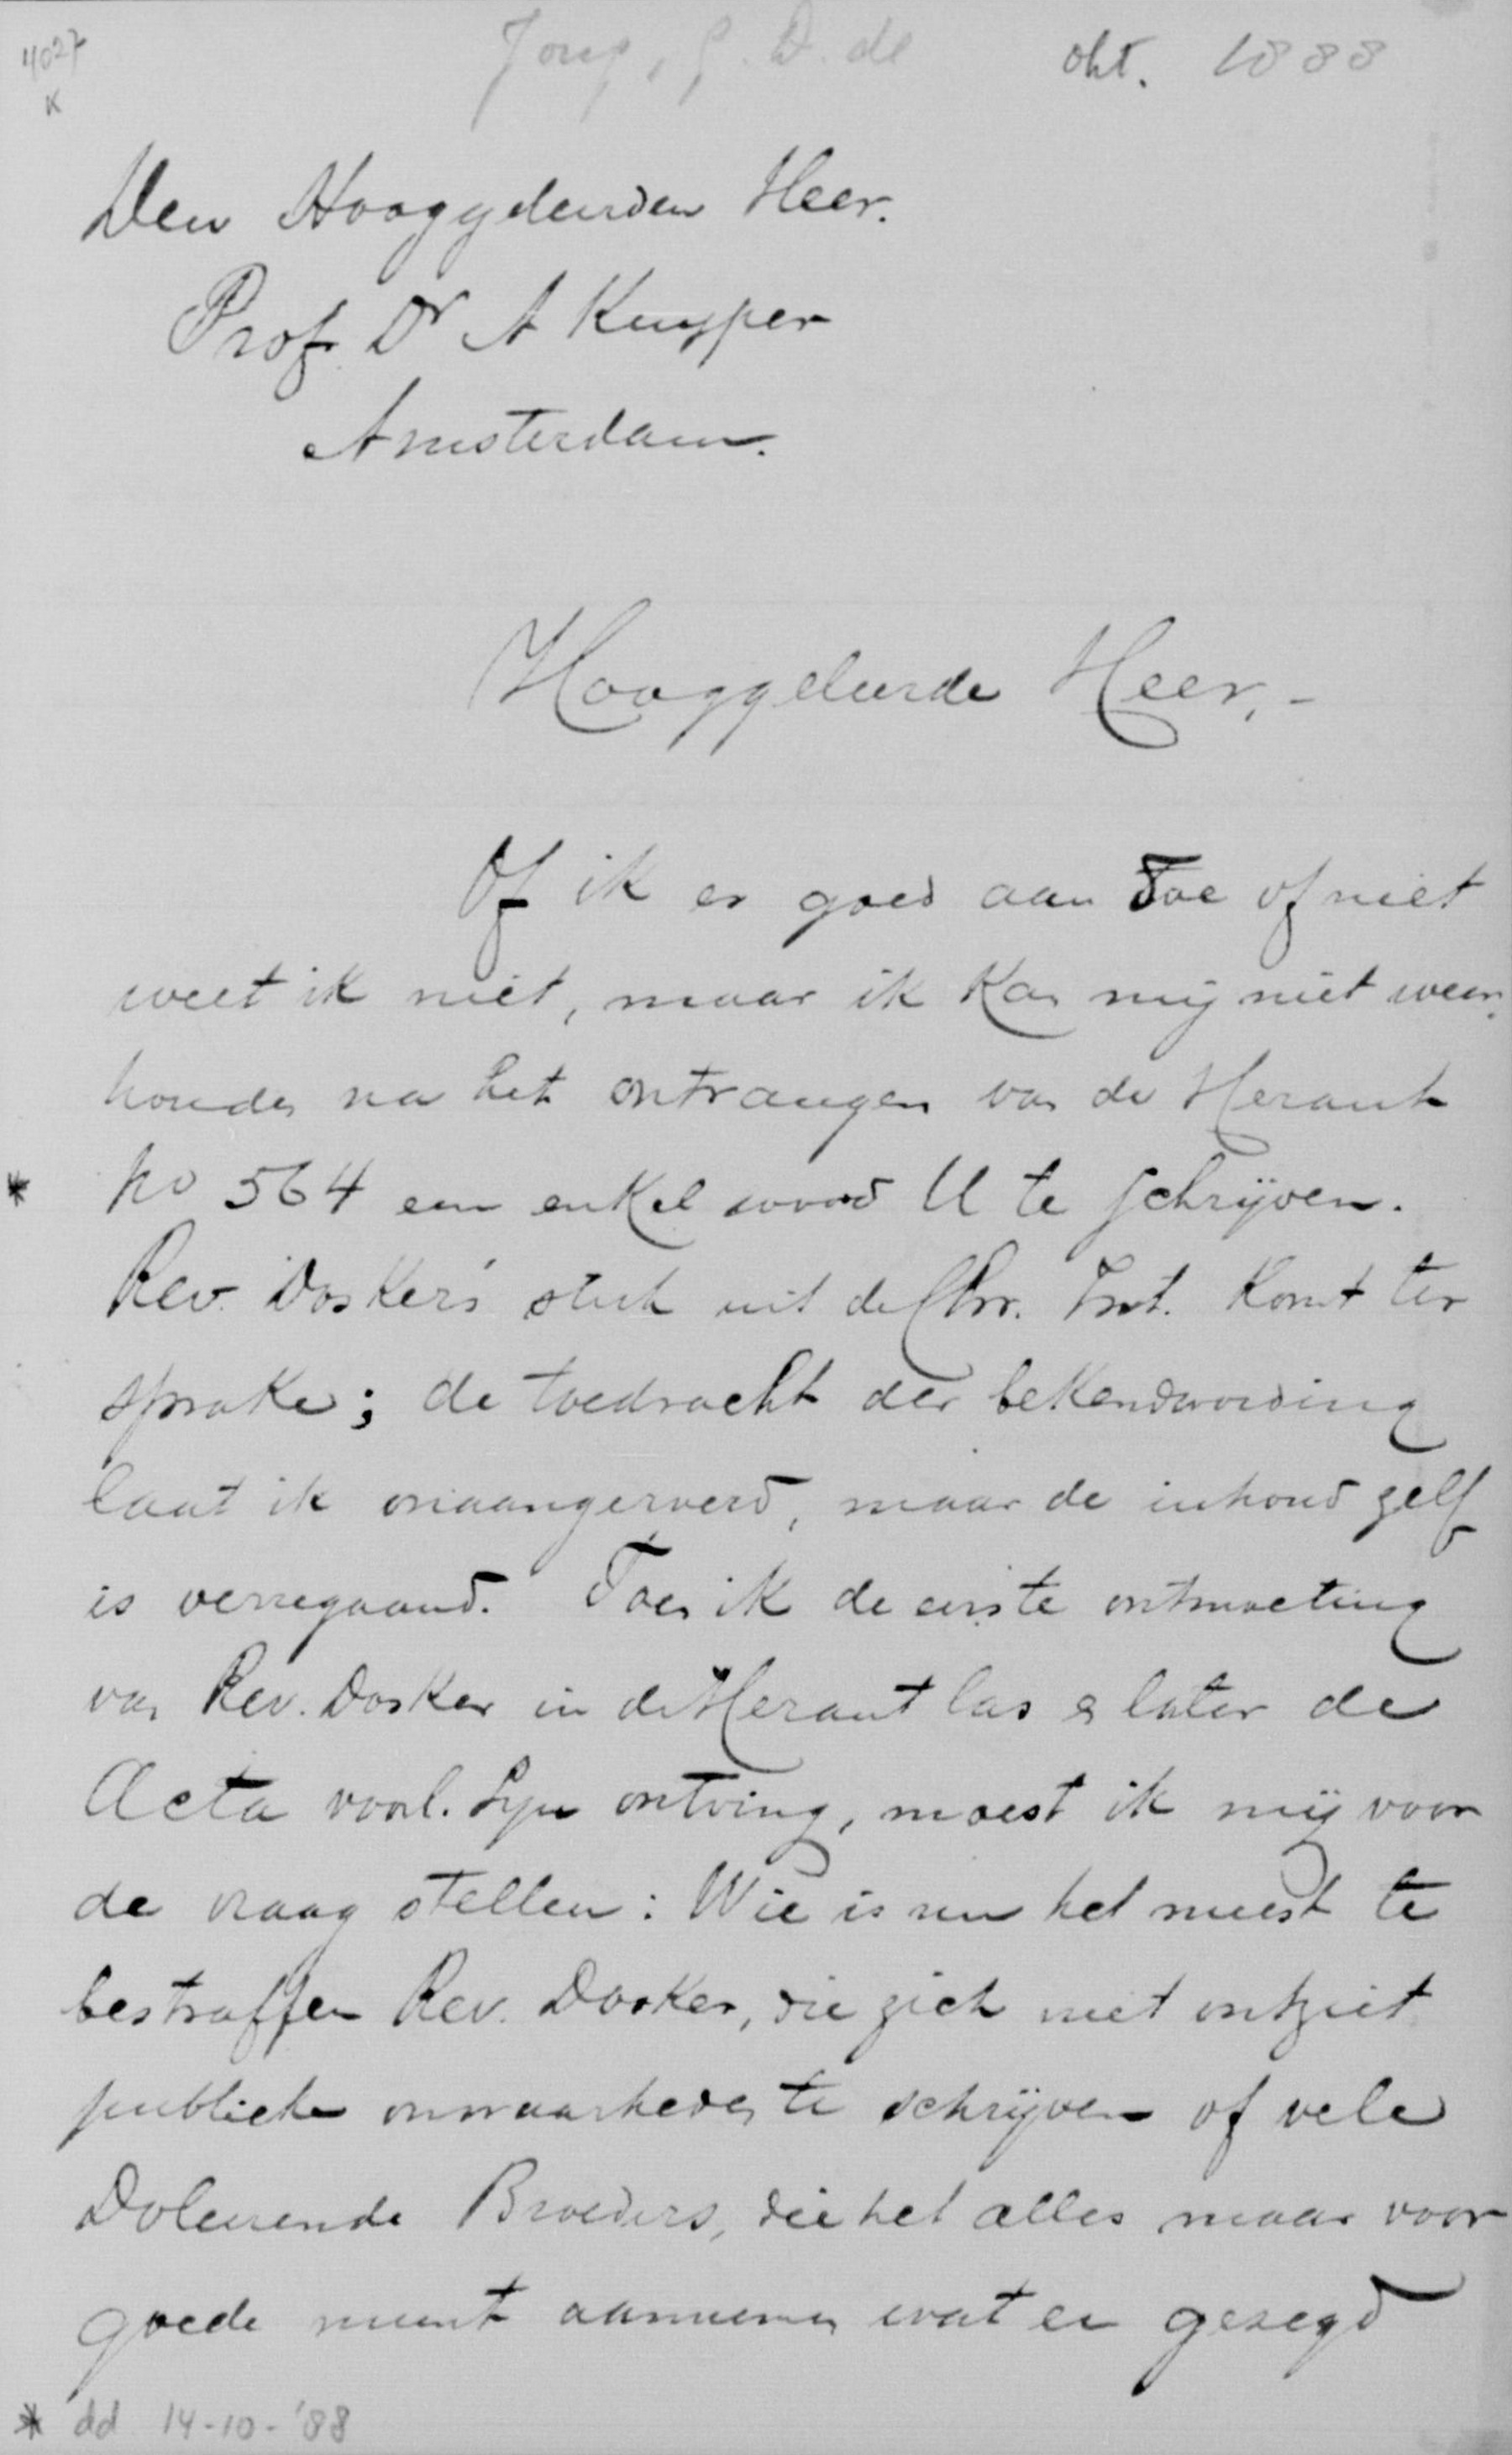 4027
K
Jong, G. D. de
okt. 1888
Den Hooggeleerden Heer.
Prof. Dr A Kuyper
Amsterdam.
Hooggeleerde Heer,-
Of ik er goed aan doe of niet
weet ik niet, maar ik kan mij niet weer-
houden na het ontvangen van de Heraut
* no 564 een enkel woord U te schrijven.
Rev. Dosker's stuk uit de Chr. Int. komt ter
sprake; de toedracht der bekendwording
laat ik onaangeroerd, maar de inhoud zelf
is verregaand. Toen ik de eerste ontmoeting
van Rev. Dosker in de Heraut las & later de
Acta voorl. Syn ontving, moest ik mij voor
de vraag stellen: Wie is nu het meest te
bestraffen Rev. Dosker, die zich niet ontziet
publieke onwaarheden te schrijven of vele
Doleerende Broeders, die het alles maar voor
goede munt aannemen wat er gezegd
* dd 14-10-'88